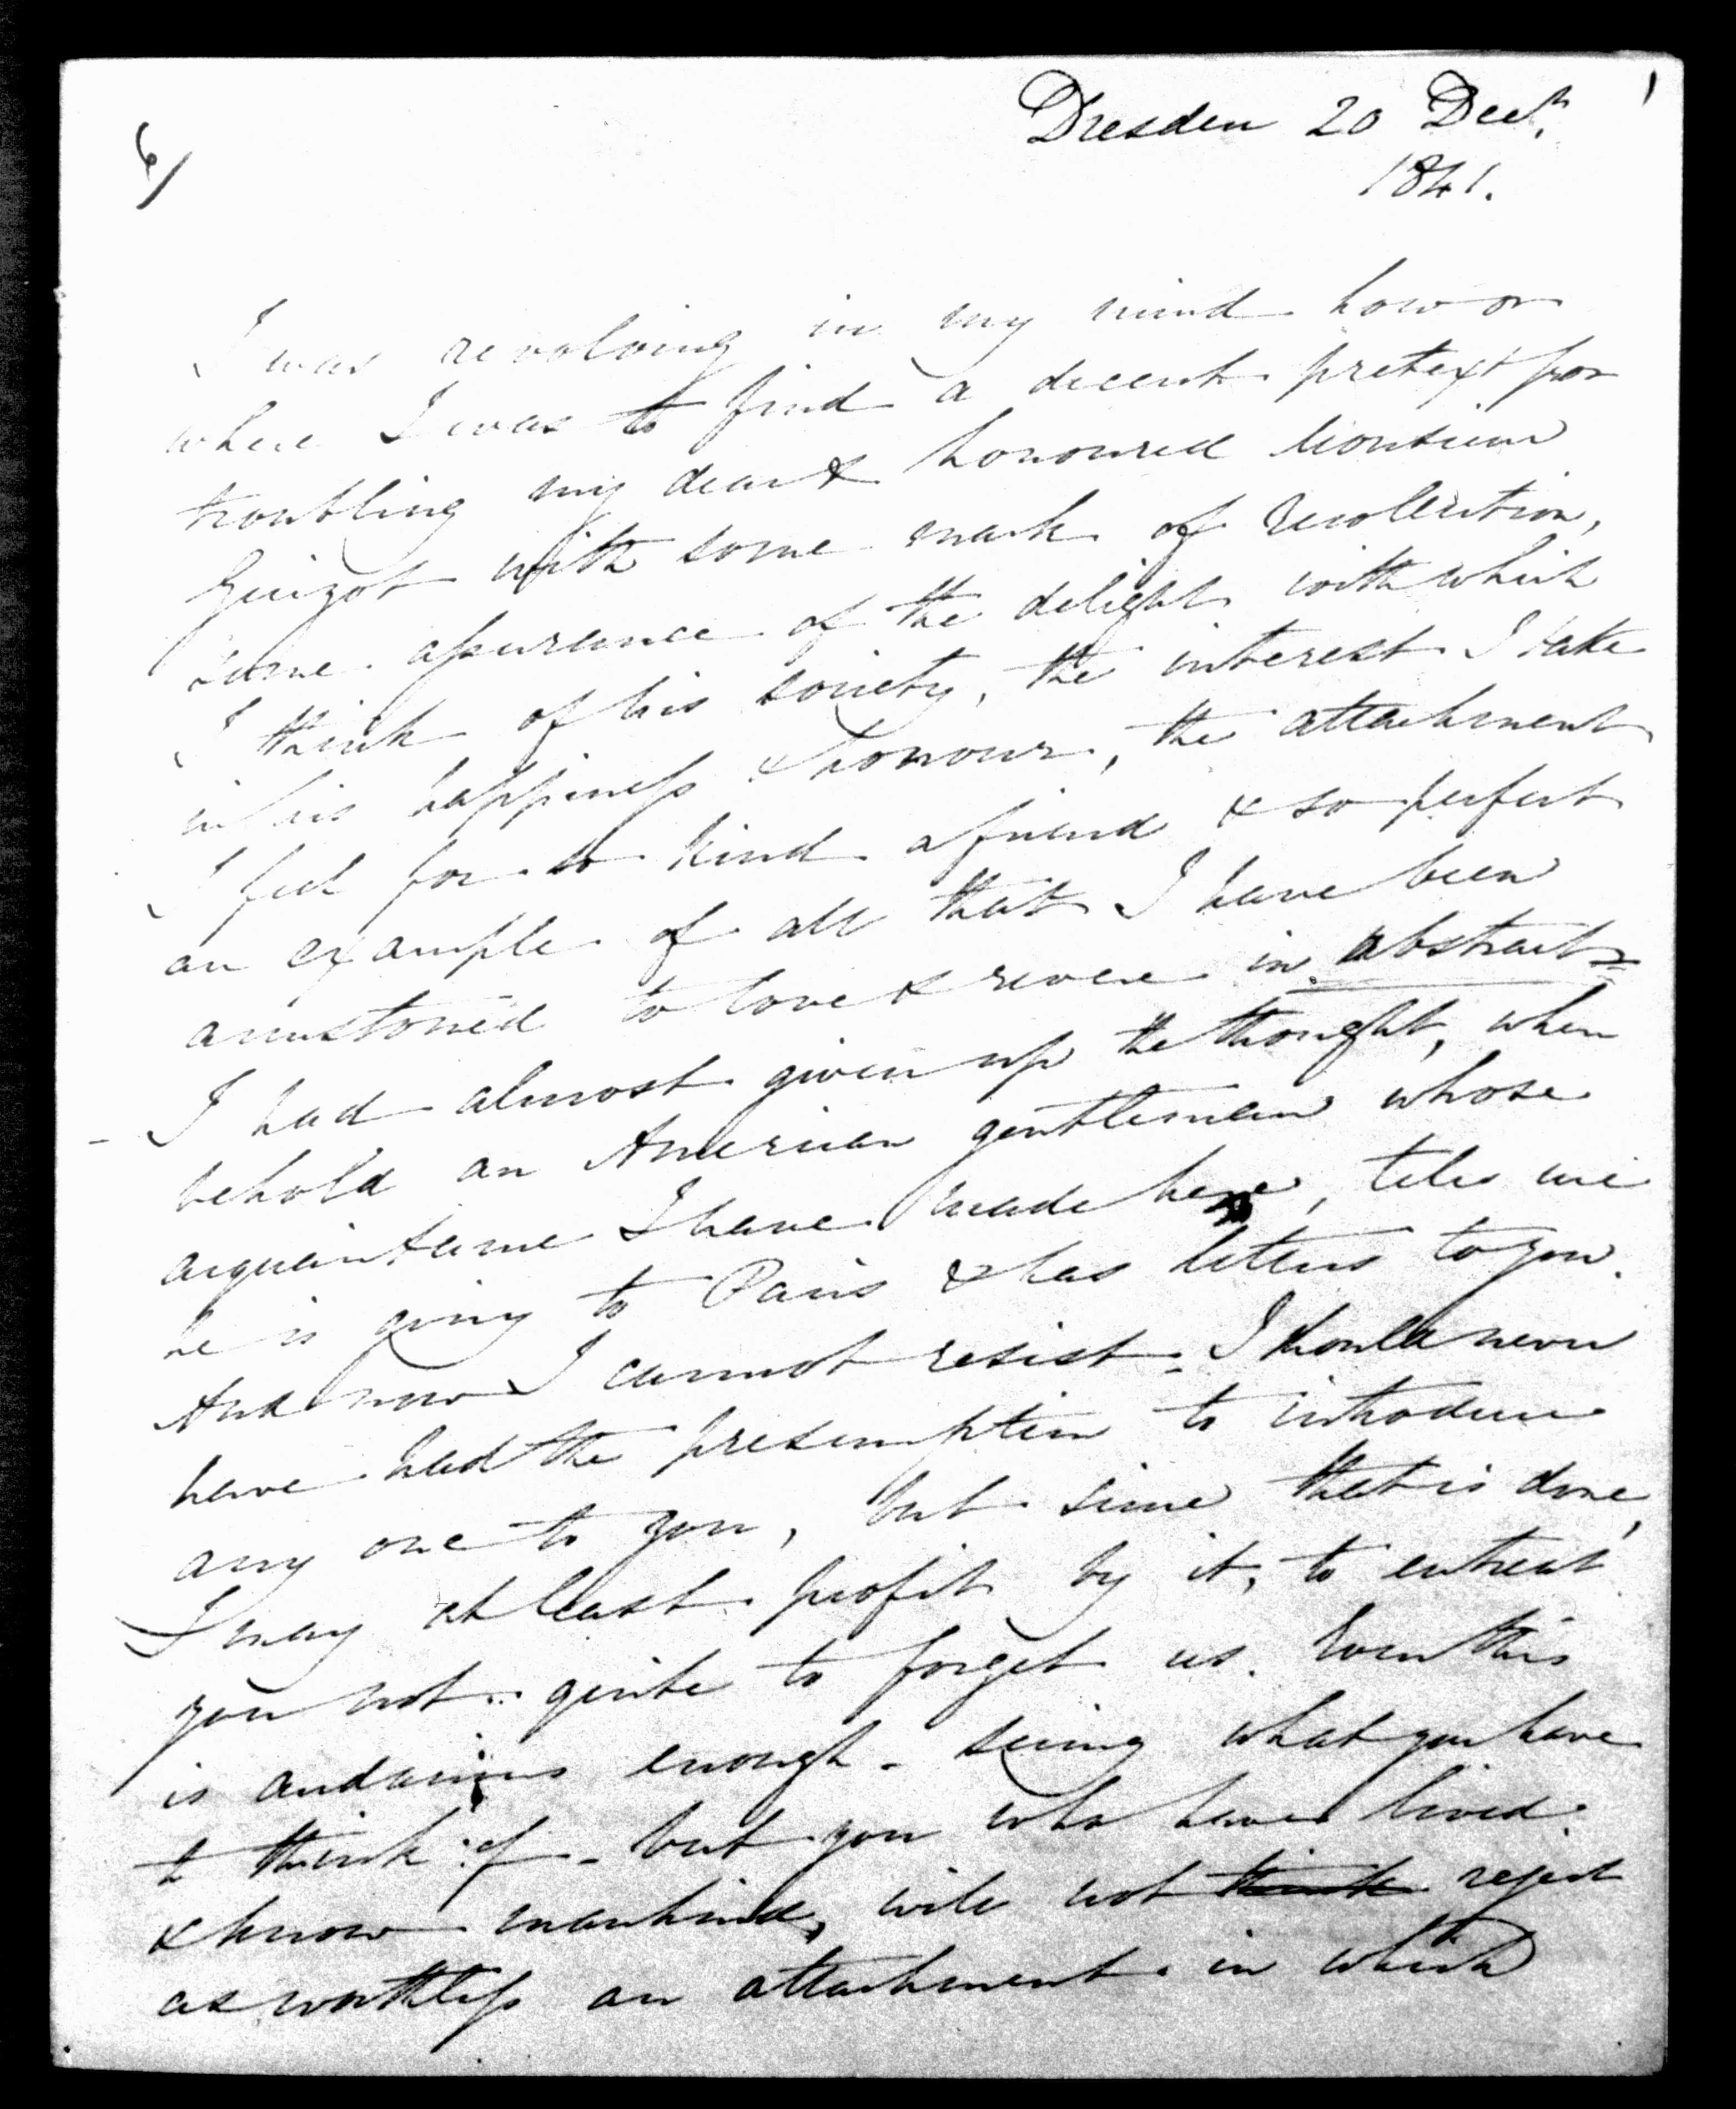 6/
1
Dresden 20 Decr.
1841.
I was revolving in my mind how or
where I was to find a decent pretext for
troubling my dear & honoured Monsieur
Guizot with some mark of recollection,
some assurance of the delight with which
I think of his society, the interest I take
in his happiness & honour, the attachment
I feel for so kind a friend & so perfect
an example of all that I have been
accustomed to love & revere in abstracto
- I had almost given up the thought, when
behold an American gentleman whose
acquaintance I have made here, tells me
he is going to Paris & has letters to you.
And now I cannot resist. I should never
have had the presumption to introduce
any one to you, but since that is done,
I may at least profit by it, to entreat
you not quite to forget us. Even this
is audacious enough - seeing what you have
to think of - but you who have lived
& know mankind, will not think reject
as worthless an attachment in which